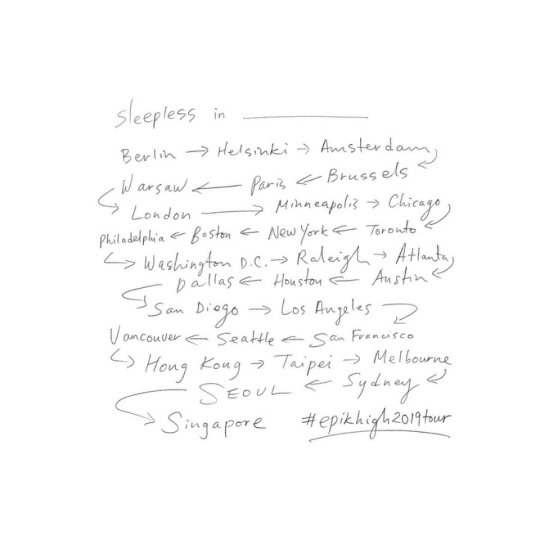 sleepless in ___________
Berlin → Helsinki → Amsterdam
Warsaw ← Paris ← Brussels
London → Minneapolis → Chicago
Philadelphia ← Boston ← New York ← Toronto
Washington D.C. → Raleigh → Atlanta
Dallas ← Houston ← Austin
San Diego → Los Angeles
Vancouver ← Seattle ← San Francisco
Hong Kong → Taipei → Melbourne
SEOUL ← Sydney
Singapore #epikhigh2019tour